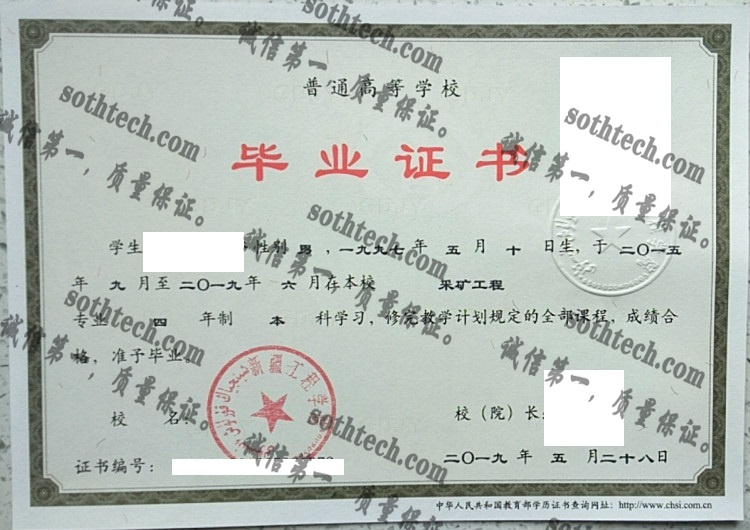 普通高等学校
毕业证书
学生 性别 男 ，一九九七 年 五 月 十 日生，于 二〇一五
年 九 月至 二〇一九 年 六 月在本校 采矿工程
专业 四 年制 本 科学习，修完教学计划规定的全部课程，成绩合
格，准予毕业。
新疆工程学
校 名：
校（院）长：
证书编号：
二〇一九 年 五 月二十八日
中华人民共和国教育部学历证书查询网址：http://www.chsi.com.cn
sothtech.com
诚信第一，质量保证。
sothtech.com
诚信第一，质量保证。
sothtech.com
诚信第一，质量保证。
sothtech.com
诚信第一，质量保证。
sothtech.com
诚信第一，质量保证。
sothtech.com
诚信第一，质量保证。
sothtech.com
诚信第一，质量保证。